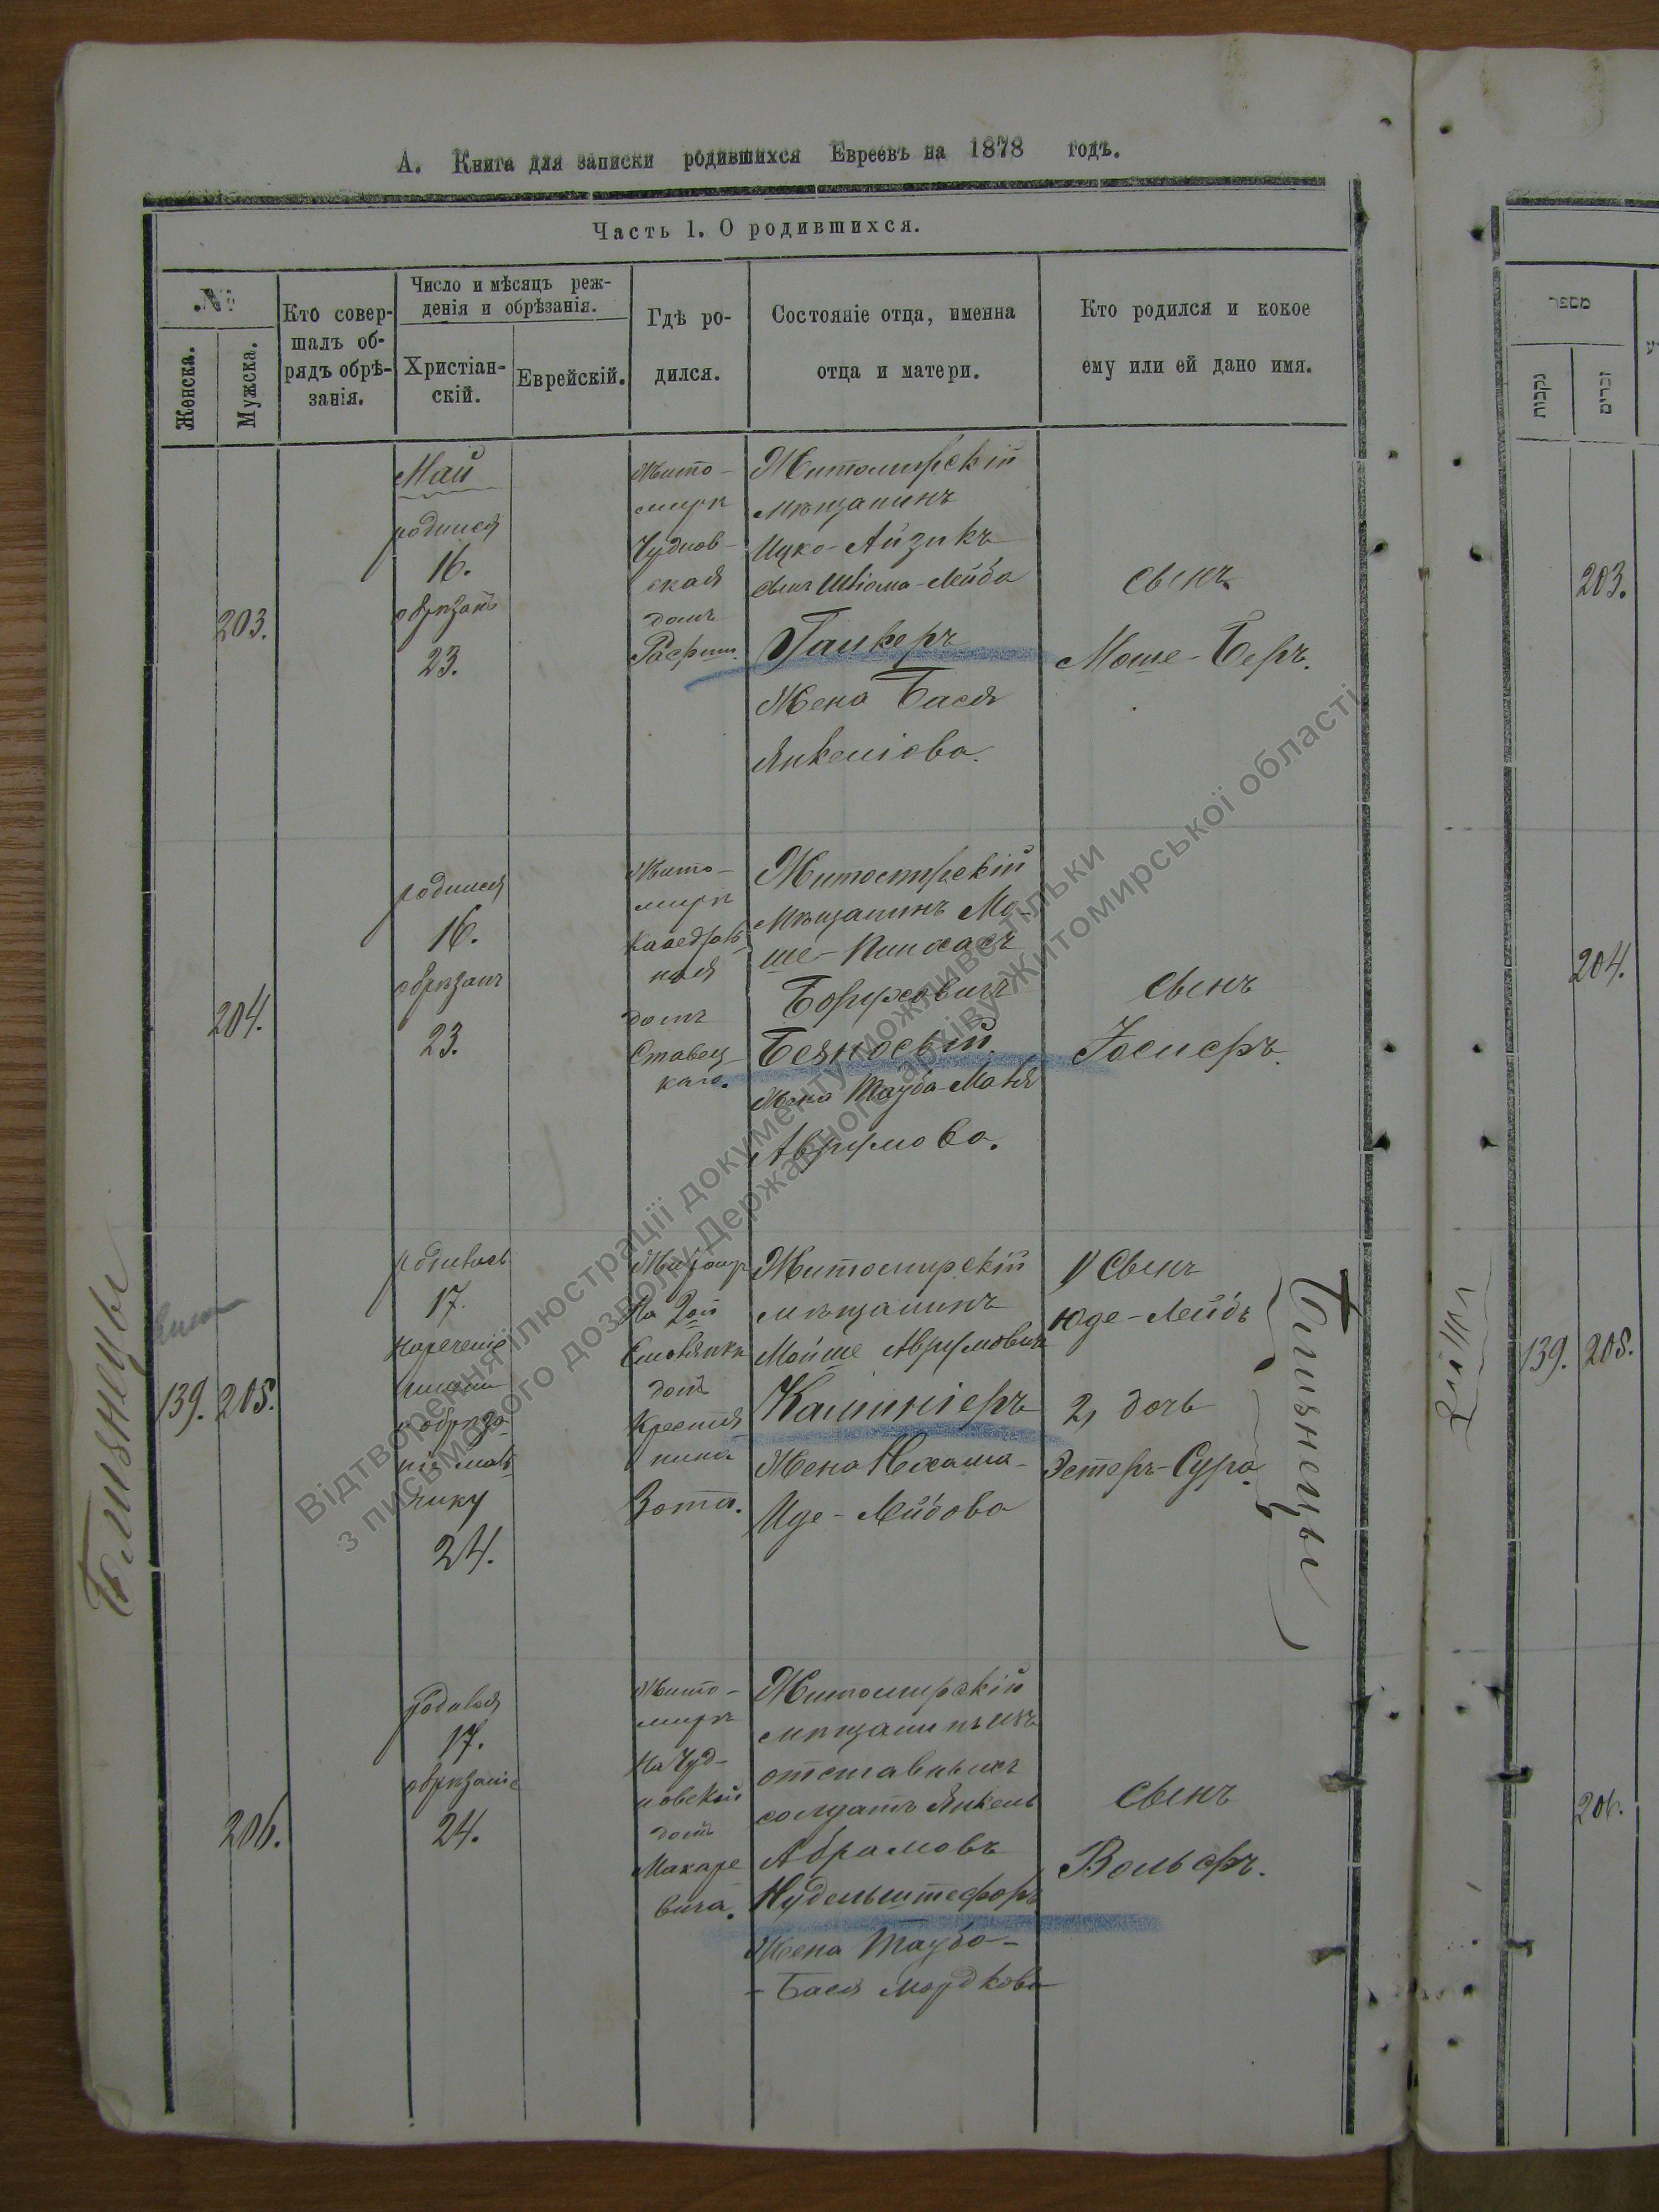 А. Книга для записки родившихся Евреевъ на 1878 годъ.
Часть 1. О родившихся.
№
Женска.
Мужска.
Кто совер-
шалъ об-
рядъ обрѣ-
занія.
Число и мѣсяцъ реж-
денія и обрѣзанія.
Христіан-
скій.
Еврейскій.
Гдѣ ро-
дился.
Состояніе отца, именна
отца и матери.
Кто родился и кокое
ему или ей дано имя.
203.
Май
родился
16.
обрѣзанъ
23.
Жито-
мирѣ
Чуднов-
ская
домъ
Житомирскій
мѣщанинъ
Ицко-Айзикъ
сынъ Шліома-Лейба
Жена Бася
Янкеліова.
сынъ
Моше-Беръ.
204.
родился
16.
обрѣзанъ
23.
Жито-
мирѣ
Кафедраль-
ная
домъ
Ставец-
каго.
Житомирскій
Мѣщанинъ Мо-
ше-Пинхасъ
Боруховичъ
Жена Тауба-Маня
Аврумова.
сынъ
Іосифъ.
Близнецы
139. 205.
родились
17.
Нареченіе
имени
и обрѣза-
ніе маль-
чику
24.
Житомир
На 2ой
домъ
Крестья
нина
Зота.
Житомирскій
мѣщанинъ
Мойше Аврумовичъ
Жена Нехама-
Иде-Лейбова
1) Сынъ
Юде-Лейбъ
2, дочь
Эстеръ-Сура
Близнецы
206.
Родился
17.
обрѣзаніе
24.
Жито-
мирѣ
На Чуд-
новской
домъ
Макаре
вича.
Житомирскій
мѣщанинъ изъ
отставныхъ
солдатъ Янкель
Абрамовъ
Жена Таубо-
-Бася Мордкова
сынъ
Вольфъ.
מספר
נקבות
זכרים
203.
204.
139. 205.
206.
Відтворення ілюстрації документу можливе тільки
з письмового дозволу Державного архіву Житомирської області